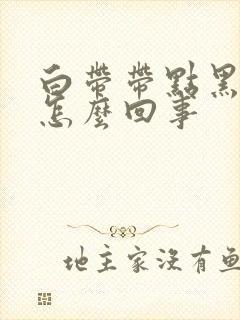 白帶帶點黑
怎麼回事
地主家沒有魚